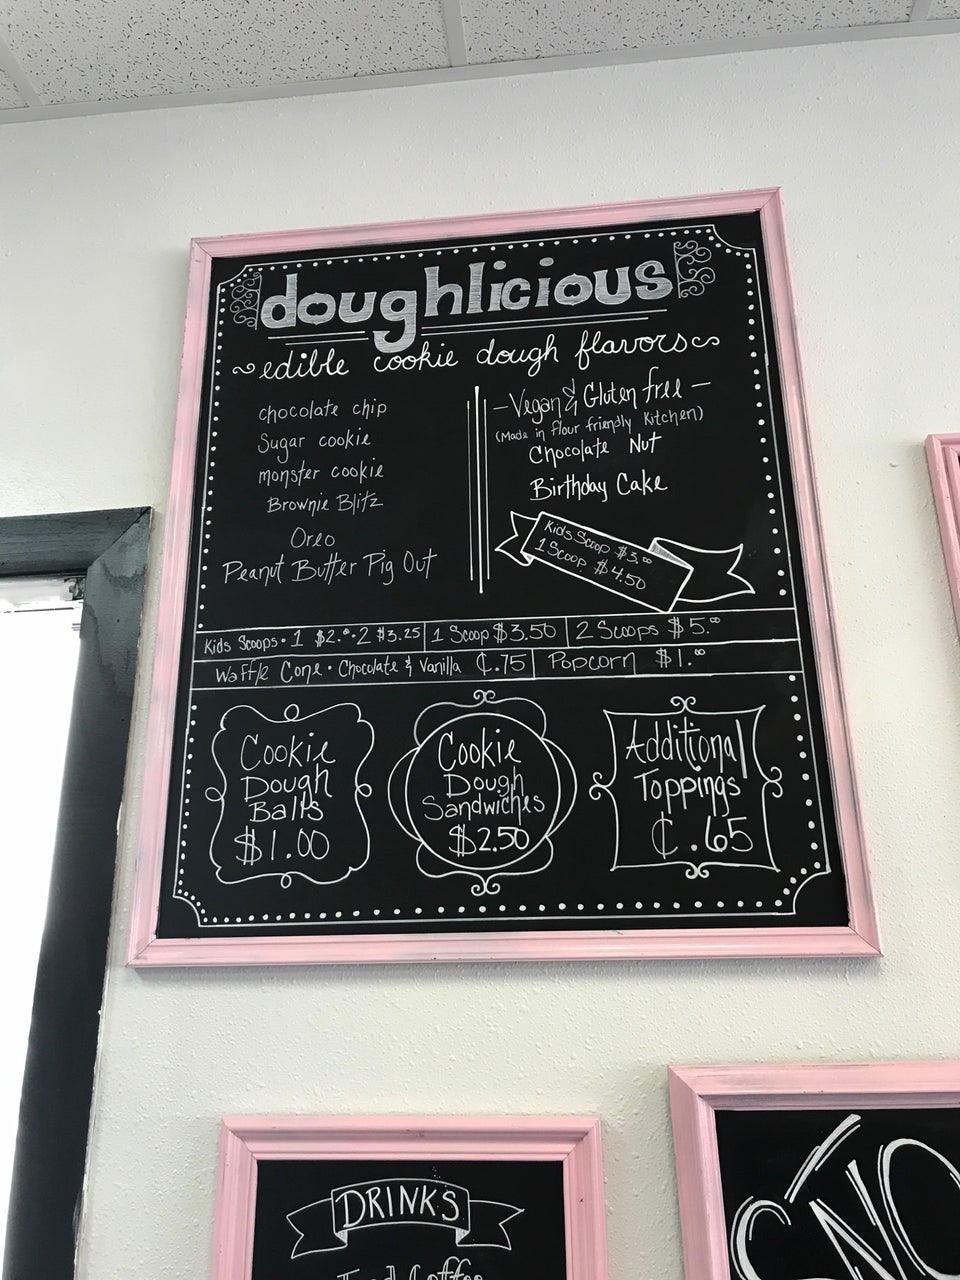 doughlicious
edible cookie dough flavors
chocolate chip
Sugar cookie
monster cookie
Brownie Blitz
Oreo
Peanut Butter Pig Out
- Vegan & Gluten free -
(Made in flour friendly Kitchen)
Chocolate Nut
Birthday Cake
Kids Scoop $3.00
1 Scoop $4.50
Kids Scoops • 1 $2.00 • 2 $3.25 | 1 Scoop $3.50 | 2 Scoops $5.00
Waffle Cone • Chocolate & Vanilla ₵.75 | Popcorn $1.00
Cookie
Dough
Balls
$1.00
Cookie
Dough
Sandwiches
$2.50
Additional
Toppings
₵ .65
DRINKS
Iced Coffee
SNO